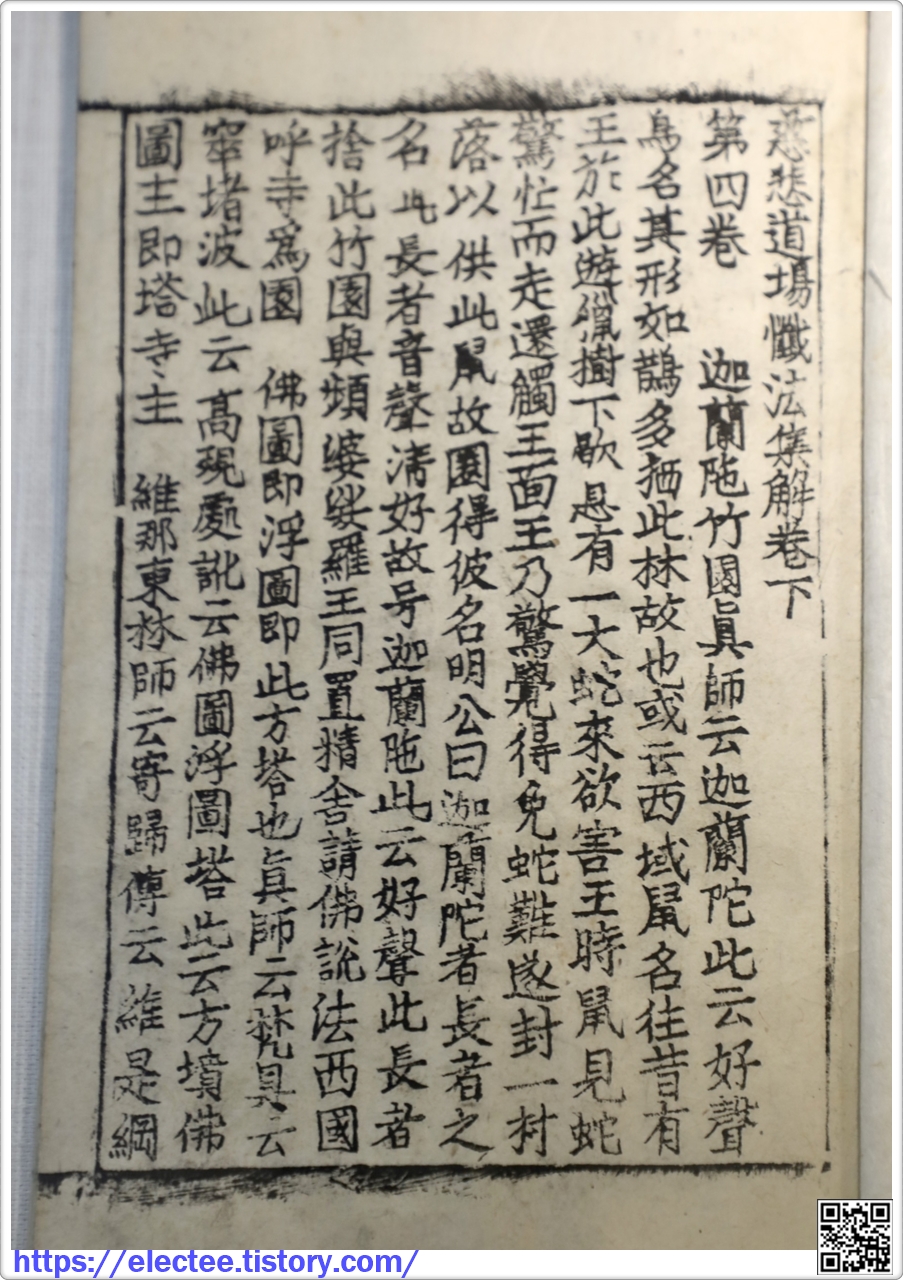 慈悲道場懺法集解卷下
第四卷 迦蘭陁竹園眞師云迦蘭陀此云好聲
鳥名其形如鵲多栖此林故也或云西域鼠名往昔有
王於此遊獵樹下歇息有一大蛇來欲害王時鼠見蛇
驚忙而走還觸王面王乃驚覺得免蛇難遂封一村
落以供此鼠故園得彼名明公曰迦蘭陀者長者之
名此長者音聲淸好故号迦蘭陁此云好聲此長者
捨此竹園與頻婆娑羅王同置精舍請佛說法西國
呼寺爲園 佛圖即浮圖即此方塔也眞師云梵具云
窣堵波此云高現處訛云佛圖浮圖塔此云方墳佛
圖主即塔寺主 維那東林師云寄歸傳云維是綱
https://electee.tistory.com/